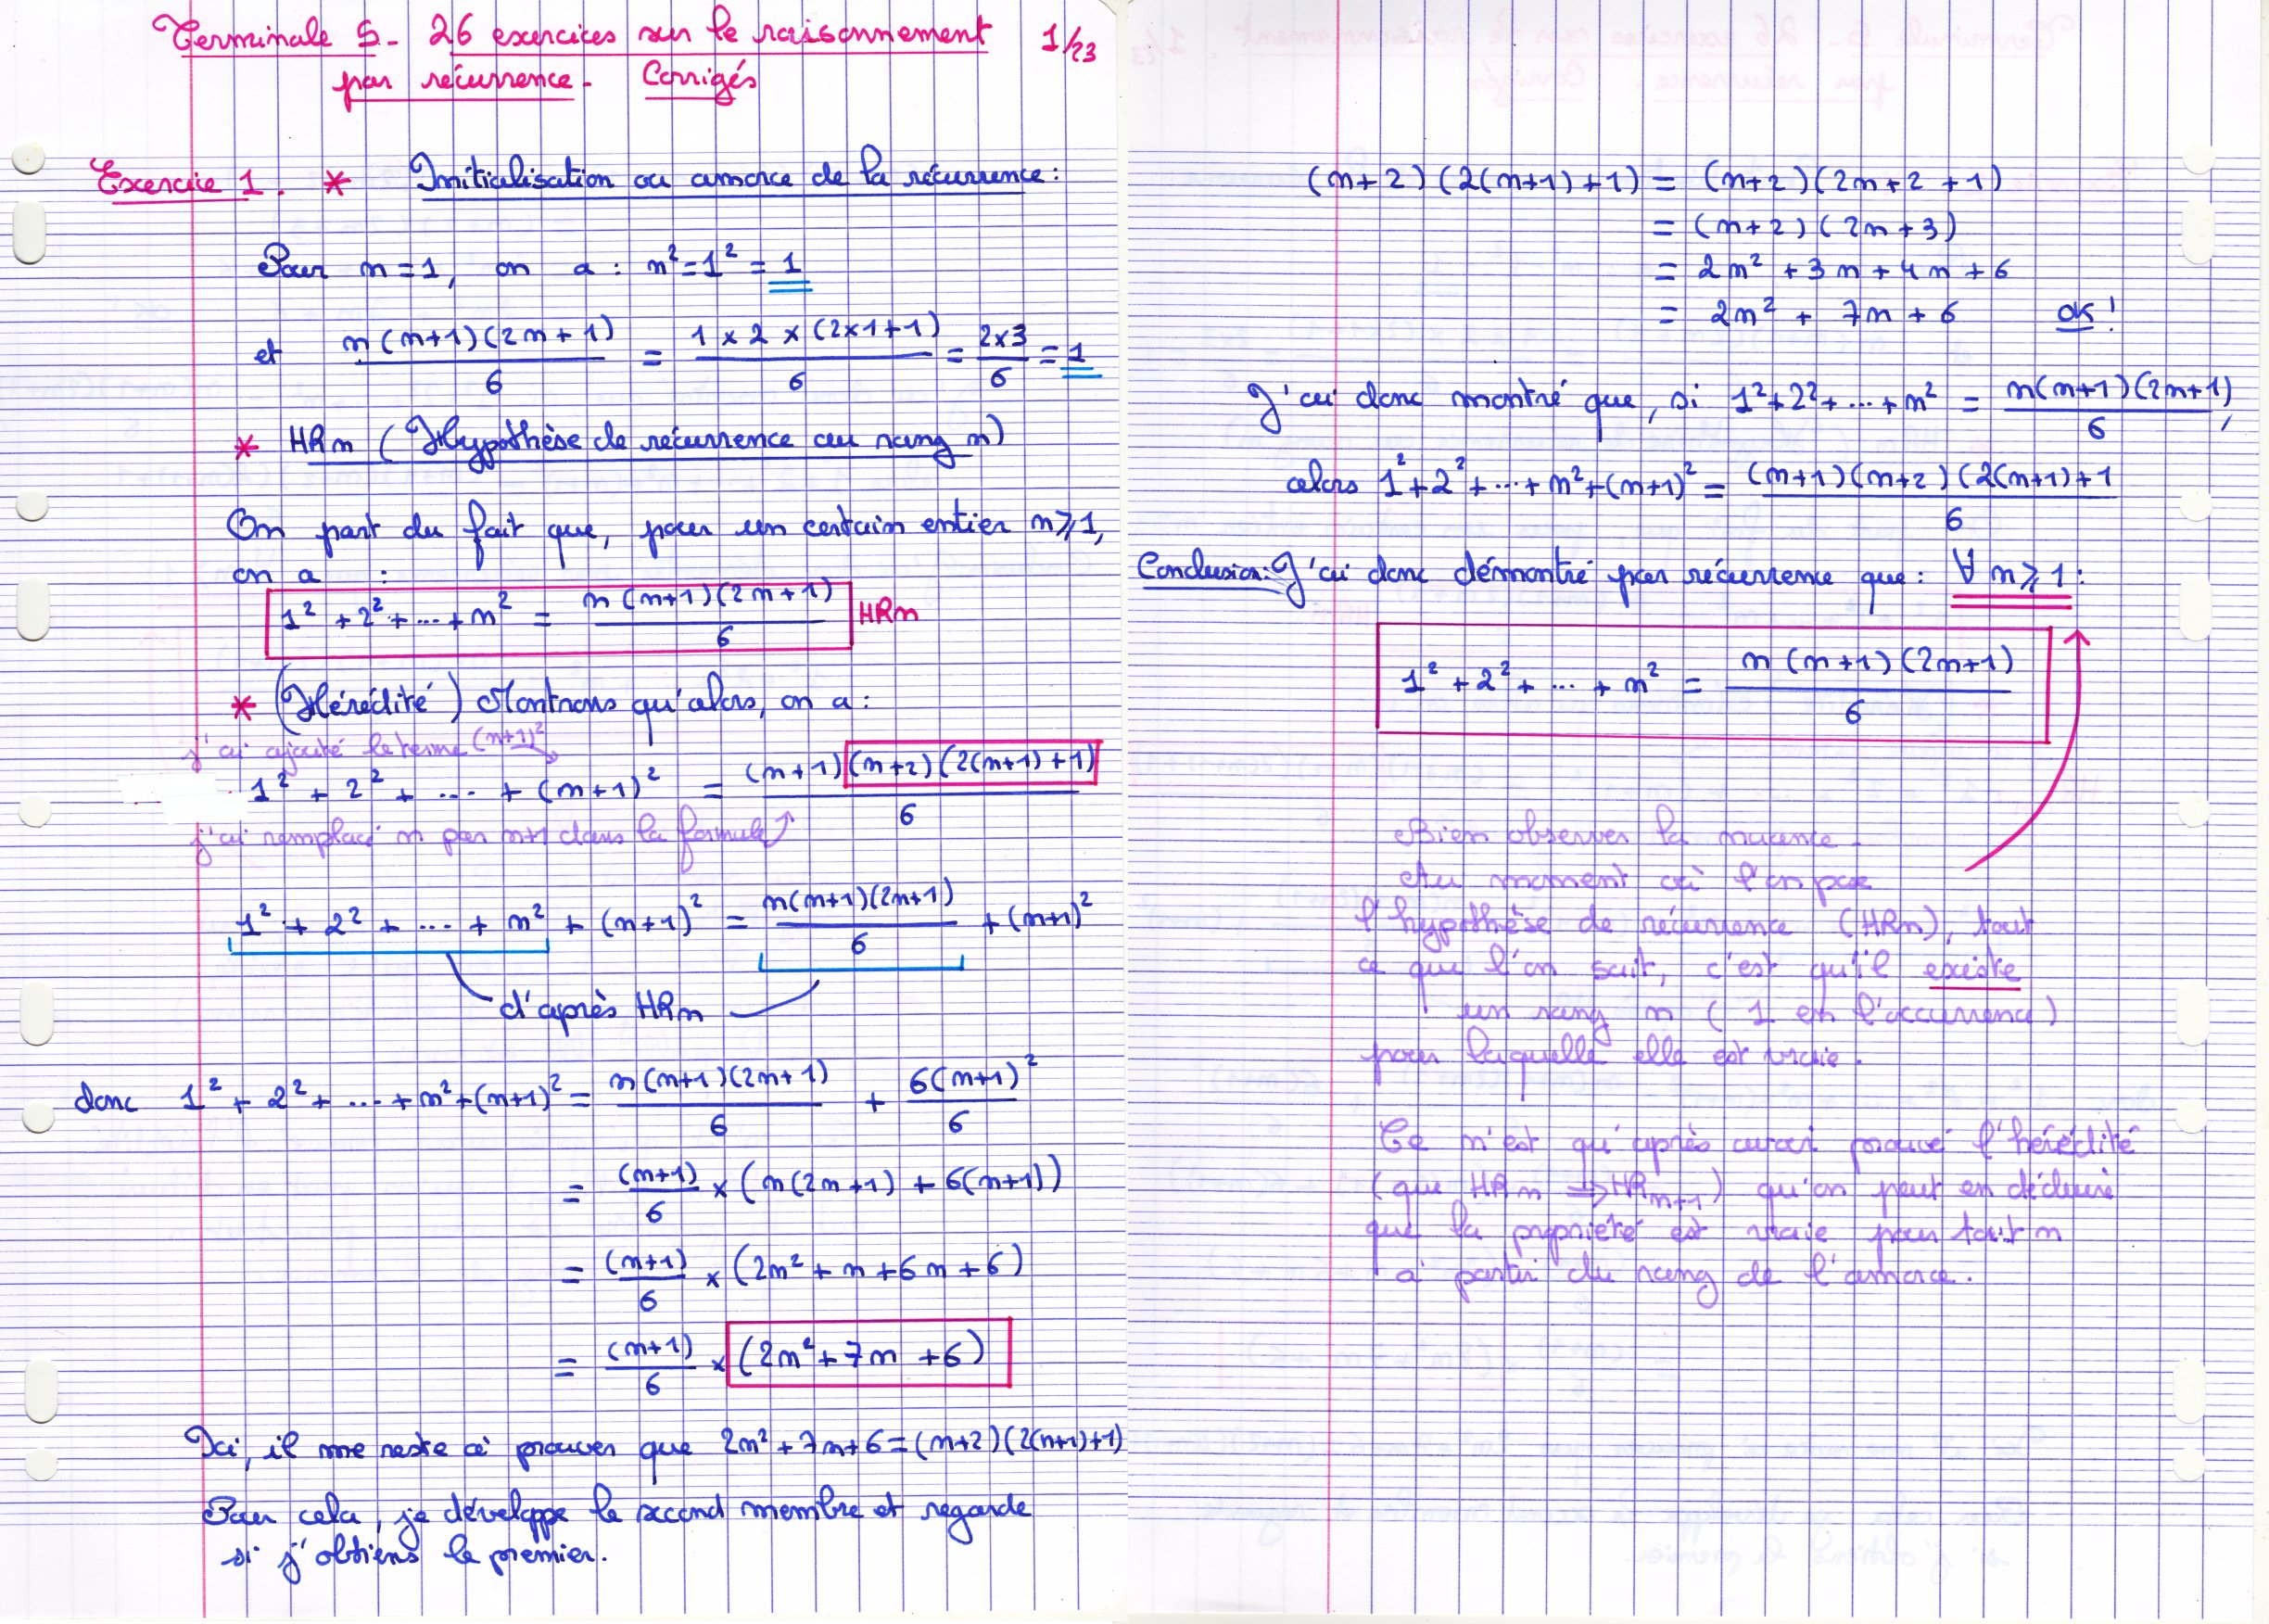 Terminale S - 26 exercices sur le raisonnement 1/23
par récurrence - Corrigés
Exercice 1. * Initialisation ou amorce de la récurrence :
Pour n = 1, on a : n² = 1² = 1
et n(n+1)(2n+1)/6 = 1 × 2 × (2×1+1)/6 = 2×3/6 = 1
* HRn (Hypothèse de récurrence au rang n)
On part du fait que, pour un certain entier n ⩾ 1,
on a :
1² + 2² + ... + n² = n(n+1)(2n+1)/6 HRn
* (Hérédité) Montrons qu'alors, on a :
j'ai ajouté le terme (n+1)²
1² + 2² + ... + (n+1)² = (n+1)(n+2)(2(n+1)+1)/6
j'ai remplacé n par n+1 dans la formule ↑
1² + 2² + ... + n² + (n+1)² = n(n+1)(2n+1)/6 + (n+1)²
d'après HRn
donc 1² + 2² + ... + n² + (n+1)² = n(n+1)(2n+1)/6 + 6(n+1)²/6
= (n+1)/6 × (n(2n+1) + 6(n+1))
= (n+1)/6 × (2n² + n + 6n + 6)
= (n+1)/6 × (2n² + 7n + 6)
Ici, il me reste à prouver que 2n² + 7n + 6 = (n+2)(2(n+1)+1)
Pour cela, je développe le second membre et regarde
si j'obtiens le premier.
(n+2)(2(n+1)+1) = (n+2)(2n+2+1)
= (n+2)(2n+3)
= 2n² + 3n + 4n + 6
= 2n² + 7n + 6 OK !
J'ai donc montré que, si 1² + 2² + ... + n² = n(n+1)(2n+1)/6,
alors 1² + 2² + ... + n² + (n+1)² = (n+1)(n+2)(2(n+1)+1/6
Conclusion : J'ai donc démontré par récurrence que : ∀ n ⩾ 1 :
1² + 2² + ... + n² = n(n+1)(2n+1)/6
Bien observer la nuance.
Au moment où l'on pose
l'hypothèse de récurrence (HRn), tout
ce que l'on sait, c'est qu'il existe
un rang n (1 en l'occurrence)
pour laquelle elle est vraie.
Ce n'est qu'après avoir prouvé l'hérédité
(que HRn ⟹ HRn+1) qu'on peut en déduire
que la propriété est vraie pour tout n
à partir du rang de l'amorce.